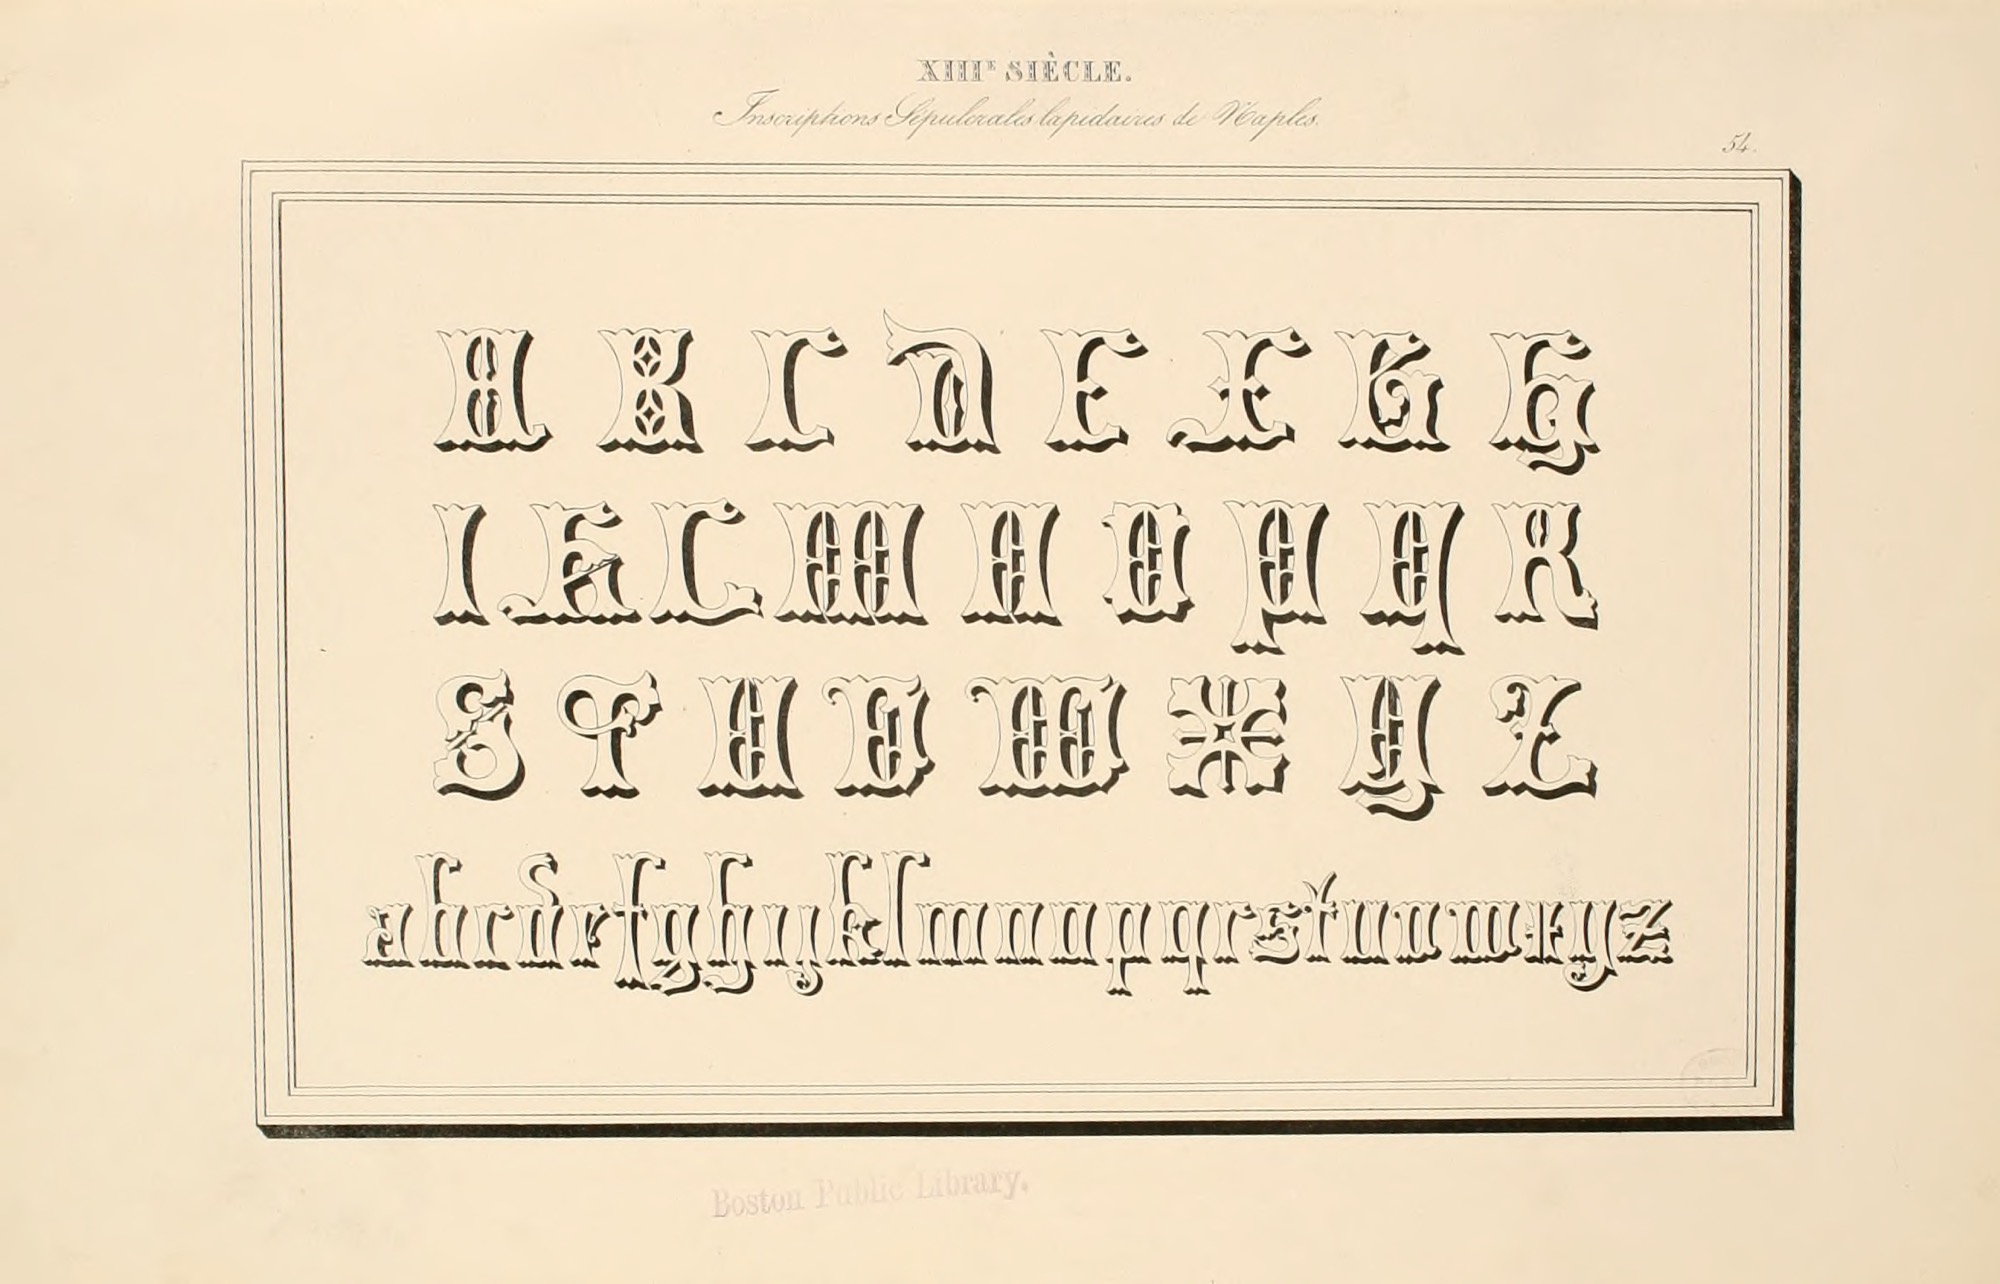 XIIIᴱ SIÈCLE.
Inscriptions Sépulcrales lapidaires de Naples.
54.
A B C D E F G H
I K L M N O P Q R
S T U V W X Y Z
a b c d e f g h i j k l m n o p q r s t u v w x y z
Boston Public Library.